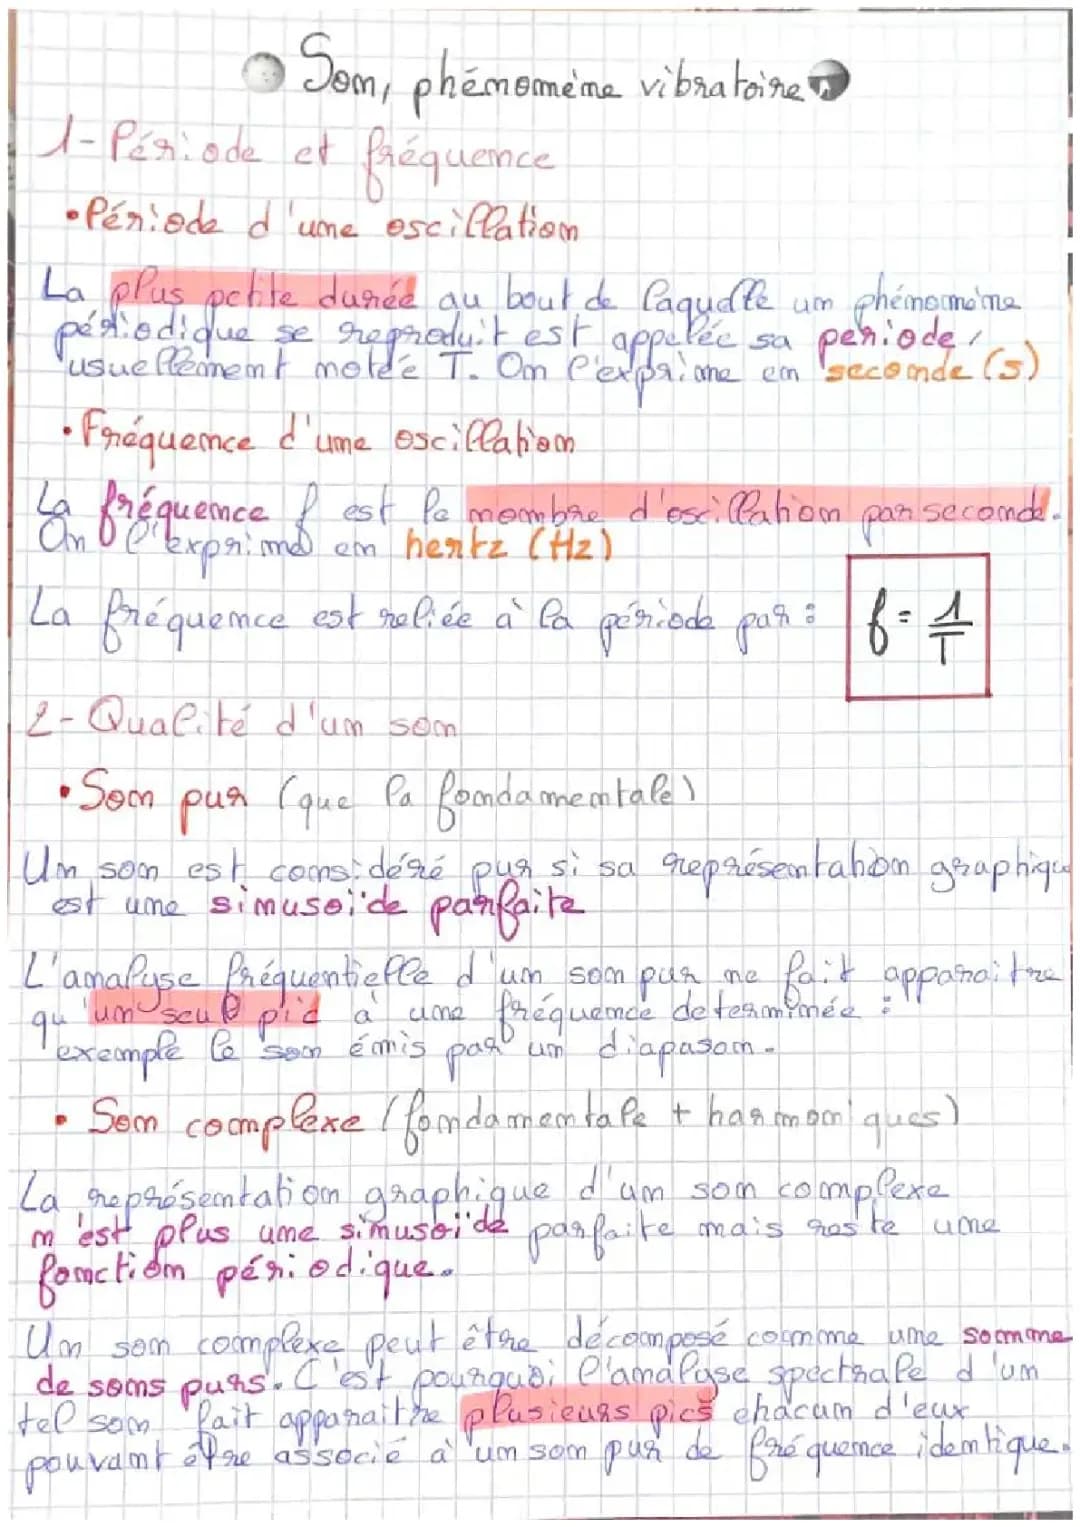 Son, phénomène vibratoire
1- Période et fréquence
• Période d'une oscillation
La plus petite durée au bout de laquelle un phénomène
périodique se reproduit est appelée sa periode,
usuellement notée T. On l'exprime en seconde (s)
• Fréquence d'une oscillation
La fréquence f est le nombre d'oscillation par seconde.
On l'exprime en hertz (Hz)
La fréquence est reliée à la période par : f = 1/T
2- Qualité d'un son
• Son pur (que la fondamentale)
Un son est considéré pur si sa représentation graphique
est une sinusoïde parfaite
L'analyse fréquentielle d'un son pur ne fait apparaitre
qu'un seul pic à une fréquence determinée :
exemple le son émis par un diapason.
• Son complexe (fondamentale + harmoniques)
La représentation graphique d'un son complexe
n'est plus une sinusoïde parfaite mais reste une
fonction périodique.
Un son complexe peut être décomposé comme une somme
de sons purs. C'est pourquoi l'analyse spectrale d'un
tel son fait apparaitre plusieurs pics chacun d'eux
pouvant être associé à un son pur de fréquence identique.